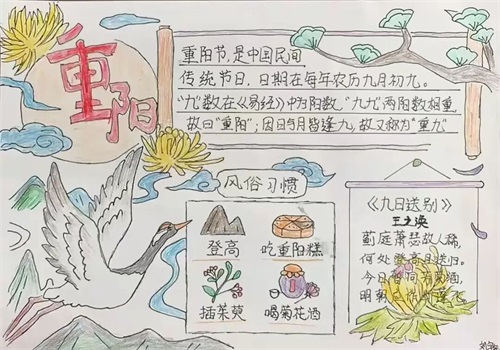 重阳
重阳节,是中国民间
传统节日,日期在每年农历九月初九。
“九”数在《易经》中为阳数,“九九”两阳数相重,
故曰“重阳”;因日与月皆逢九,故又称为“重九”
风俗习惯
登高
吃重阳糕
插茱萸
喝菊花酒
《九日送别》
王之涣
蓟庭萧瑟故人稀,
何处登高且送归。
今日暂同芳菊酒,
明朝应作断蓬飞。